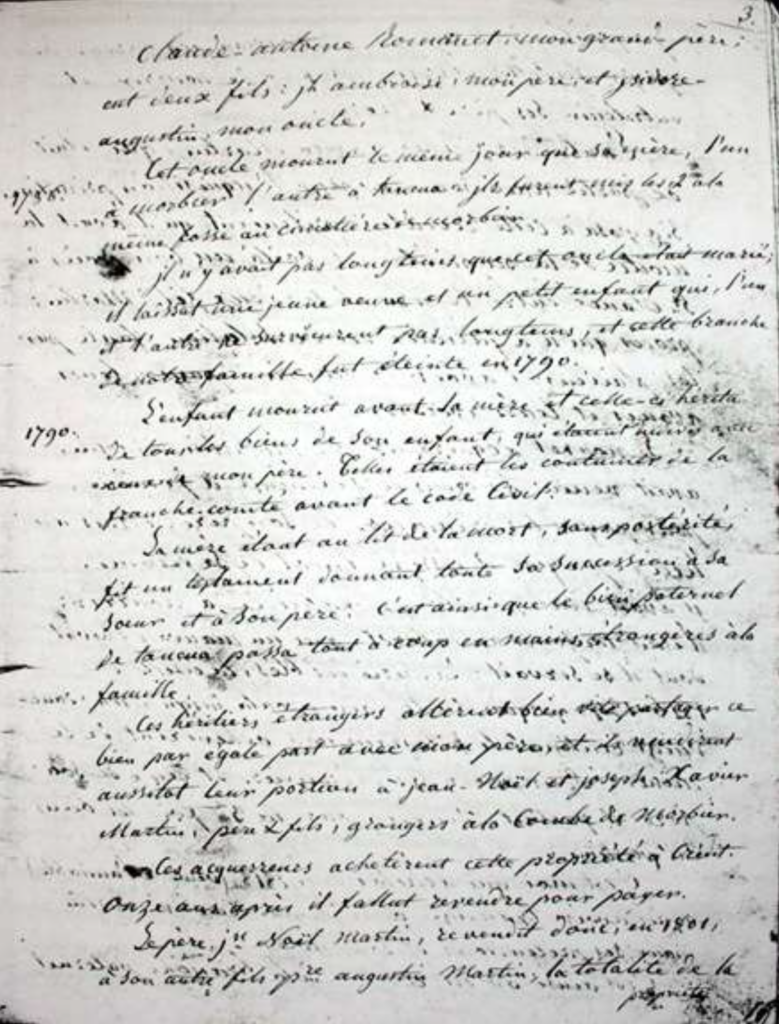 3.
Claude-antoine Romanet, mon grand-père,
eut deux fils: jh ambroise, mon père, et jsidore-
augustin, mon oncle.
Cet oncle mourut le même jour que sa mère, l'un
à morbier l'autre à tancua, jls furent mis les 2 à la
même fosse au cimetière de morbier.
jl n'y avait pas longtems que cet oncle était marié;
il laissat une jeune veuve et un petit enfant qui, l'un
et l'autre ne survécurent pas longtems, et cette branche
de notre famille fut éteinte en 1790.
1790. L'enfant mourut avant sa mère et celle-ci hérita
de tous les biens de son enfant, qui étaient indivis avec
ceux de mon père. Telles étaient les coutumes de la
franche-comté avant le code Civil.
La mère étant au lit de la mort, sans postérité,
fit un testament donnant toute sa succession à sa
soeur et à son père. C'est ainsi que le bien paternel
de tancua passa tout à coup en mains étrangères à la
famille.
Ces héritiers étrangers allèrent bien vite partager ce
bien par égale part avec mon père, et ils vendirent
aussitot leur portion à jean-Noël et joseph Xavier
Martin, père & fils, grangers à la Combe de Morbier.
Ces acquerreurs achetèrent cette propriété à Crédit.
Onze ans après il fallut revendre pour payer.
Le père jn Noël Martin, revendit donc, en 1801,
à son autre fils pre augustin Martin, la totalité de la
propriété